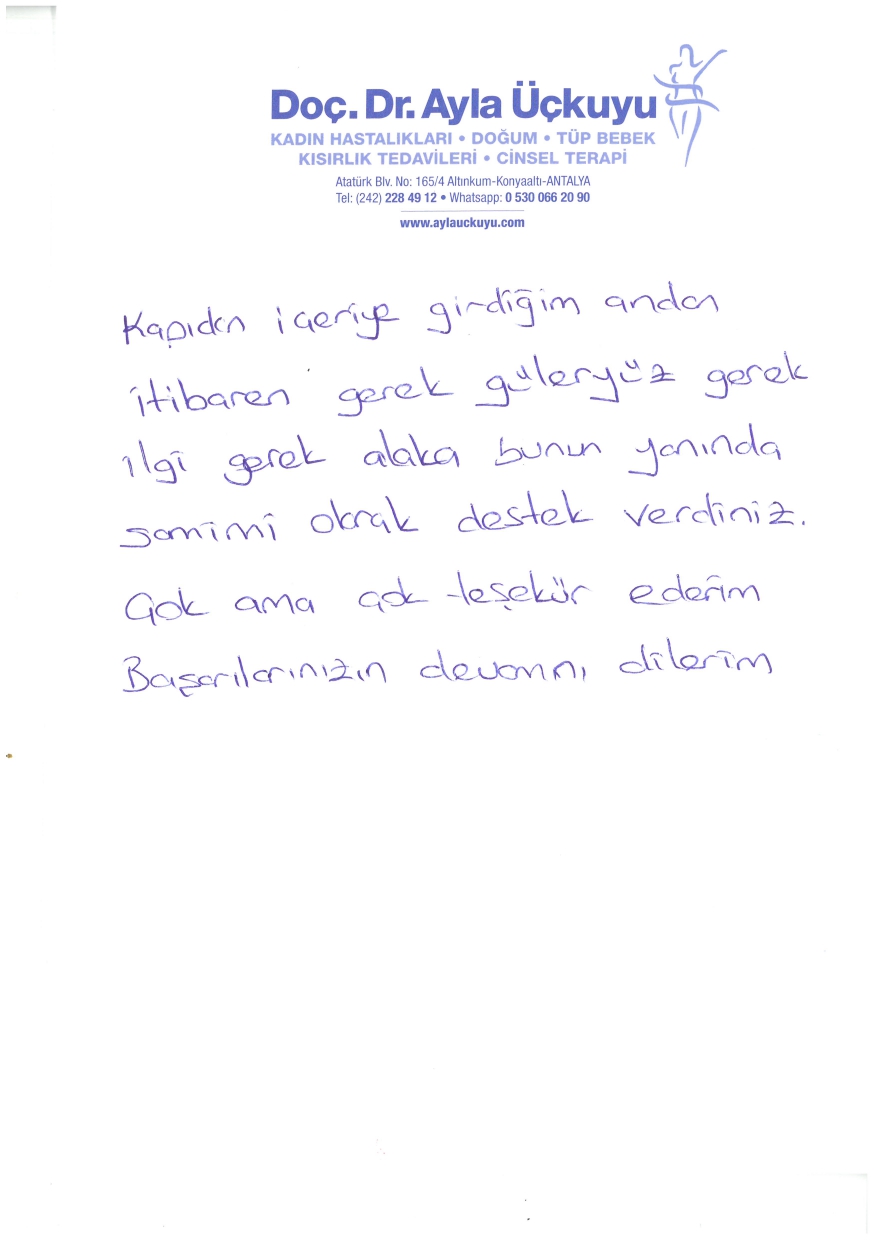 Doç. Dr. Ayla Üçkuyu
KADIN HASTALIKLARI • DOĞUM • TÜP BEBEK
KISIRLIK TEDAVİLERİ • CİNSEL TERAPİ
Atatürk Blv. No: 165/4 Altınkum-Konyaaltı-ANTALYA
Tel: (242) 228 49 12 • Whatsapp: 0 530 066 20 90
www.aylauckuyu.com
Kapıdan içeriye girdiğim andan
itibaren gerek güleryüz gerek
ilgi gerek alaka bunun yanında
samimi olarak destek verdiniz.
Çok ama çok teşekür ederim
Başarılarınızın devamını dilerim